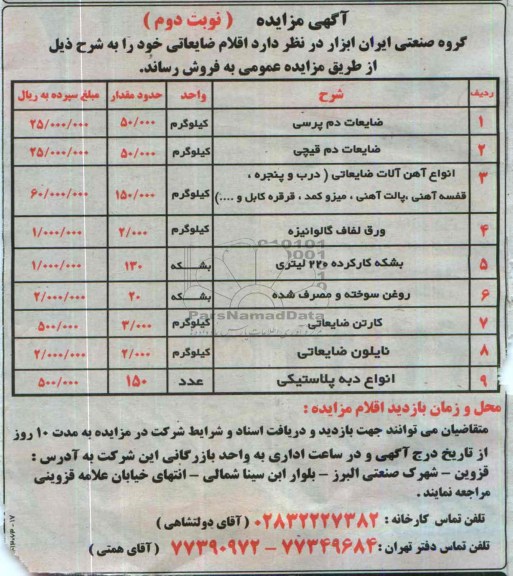 آگهی مزایده ( نوبت دوم )
گروه صنعتی ایران ابزار در نظر دارد اقلام ضایعاتی خود را به شرح ذیل
از طریق مزایده عمومی به فروش رساند.
ردیف شرح واحد حدود مقدار مبلغ سپرده به ریال
۱ ضایعات دم پرسی کیلوگرم ۵۰/۰۰۰ ۲۵/۰۰۰/۰۰۰
۲ ضایعات دم قیچی کیلوگرم ۵۰/۰۰۰ ۲۵/۰۰۰/۰۰۰
۳ انواع آهن آلات ضایعاتی ( درب و پنجره ،
قفسه آهنی ،پالت آهنی ، میزو کمد ، قرقره کابل و ....) کیلوگرم ۱۵۰/۰۰۰ ۶۰/۰۰۰/۰۰۰
۴ ورق لفاف گالوانیزه کیلوگرم ۲/۰۰۰ ۱/۰۰۰/۰۰۰
۵ بشکه کارکرده ۲۲۰ لیتری بشکه ۱۳۰ ۱/۰۰۰/۰۰۰
۶ روغن سوخته و مصرف شده بشکه ۲۰ ۲/۰۰۰/۰۰۰
۷ کارتن ضایعاتی کیلوگرم ۳/۰۰۰ ۵۰۰/۰۰۰
۸ نایلون ضایعاتی کیلوگرم ۲/۰۰۰ ۲/۰۰۰/۰۰۰
۹ انواع دبه پلاستیکی عدد ۱۵۰ ۵۰۰/۰۰۰
محل و زمان بازدید اقلام مزایده :
متقاضیان می توانند جهت بازدید و دریافت اسناد و شرایط شرکت در مزایده به مدت ۱۰ روز
از تاریخ درج آگهی و در ساعت اداری به واحد بازرگانی این شرکت به آدرس :
قزوین – شهرک صنعتی البرز – بلوار ابن سینا شمالی – انتهای خیابان علامه قزوینی
مراجعه نمایند .
تلفن تماس کارخانه : ۰۲۸۳۲۲۲۷۳۸۲ ( آقای دولتشاهی )
تلفن تماس دفتر تهران : ۷۷۳۴۹۶۸۴ – ۷۷۳۹۰۹۷۲ ( آقای همتی )
ParsNamadData